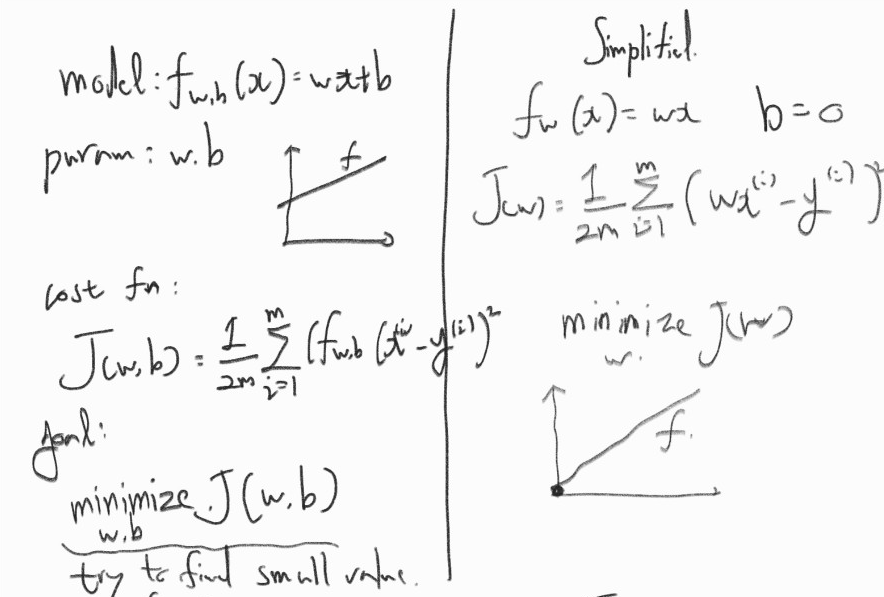 model: f_{w,b}(x) = wx+b
param: w.b
f
cost fn:
J(w,b) = \frac{1}{2m} \sum_{i=1}^{m} (f_{w,b}(x^{(i)} - y^{(i)})^2
goal:
minimize J(w,b)
w,b
try to find small value.
Simplified.
f_w(x) = wx b=0
J(w) = \frac{1}{2m} \sum_{i=1}^{m} (wx^{(i)} - y^{(i)})^2
minimize J(w)
w.
f.